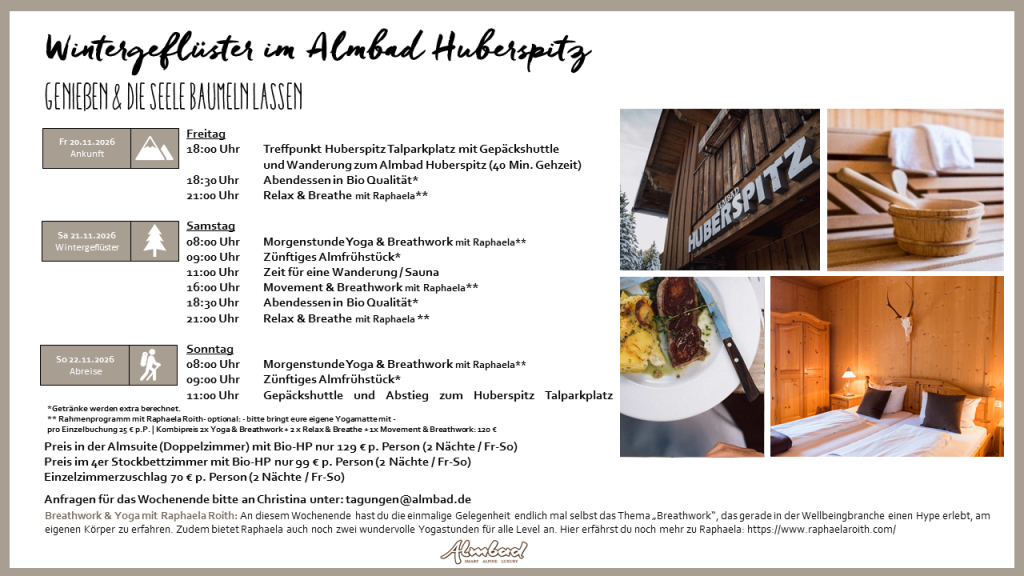 Wintergeflüster im Almbad Huberspitz
GENIEẞEN & DIE SEELE BAUMELN LASSEN
Fr 20.11.2026
Ankunft
Freitag
18:00 Uhr Treffpunkt Huberspitz Talparkplatz mit Gepäckshuttle
und Wanderung zum Almbad Huberspitz (40 Min. Gehzeit)
18:30 Uhr Abendessen in Bio Qualität*
21:00 Uhr Relax & Breathe mit Raphaela**
Sa 21.11.2026
Wintergeflüster
Samstag
08:00 Uhr Morgenstunde Yoga & Breathwork mit Raphaela**
09:00 Uhr Zünftiges Almfrühstück*
11:00 Uhr Zeit für eine Wanderung / Sauna
16:00 Uhr Movement & Breathwork mit Raphaela**
18:30 Uhr Abendessen in Bio Qualität*
21:00 Uhr Relax & Breathe mit Raphaela **
So 22.11.2026
Abreise
Sonntag
08:00 Uhr Morgenstunde Yoga & Breathwork mit Raphaela**
09:00 Uhr Zünftiges Almfrühstück*
11:00 Uhr Gepäckshuttle und Abstieg zum Huberspitz Talparkplatz
*Getränke werden extra berechnet.
** Rahmenprogramm mit Raphaela Roith- optional: - bitte bringt eure eigene Yogamatte mit -
pro Einzelbuchung 25 € p.P. | Kombipreis 2x Yoga & Breathwork + 2 x Relax & Breathe + 1x Movement & Breathwork: 120 €
Preis in der Almsuite (Doppelzimmer) mit Bio-HP nur 129 € p. Person (2 Nächte / Fr-So)
Preis im 4er Stockbettzimmer mit Bio-HP nur 99 € p. Person (2 Nächte / Fr-So)
Einzelzimmerzuschlag 70 € p. Person (2 Nächte / Fr-So)
Anfragen für das Wochenende bitte an Christina unter: tagungen@almbad.de
Breathwork & Yoga mit Raphaela Roith: An diesem Wochenende hast du die einmalige Gelegenheit endlich mal selbst das Thema „Breathwork“, das gerade in der Wellbeingbranche einen Hype erlebt, am
eigenen Körper zu erfahren. Zudem bietet Raphaela auch noch zwei wundervolle Yogastunden für alle Level an. Hier erfährst du noch mehr zu Raphaela: https://www.raphaelaroith.com/
ALMBAD
HUBERSPITZ
Almbad
SMART ALPINE LUXURY